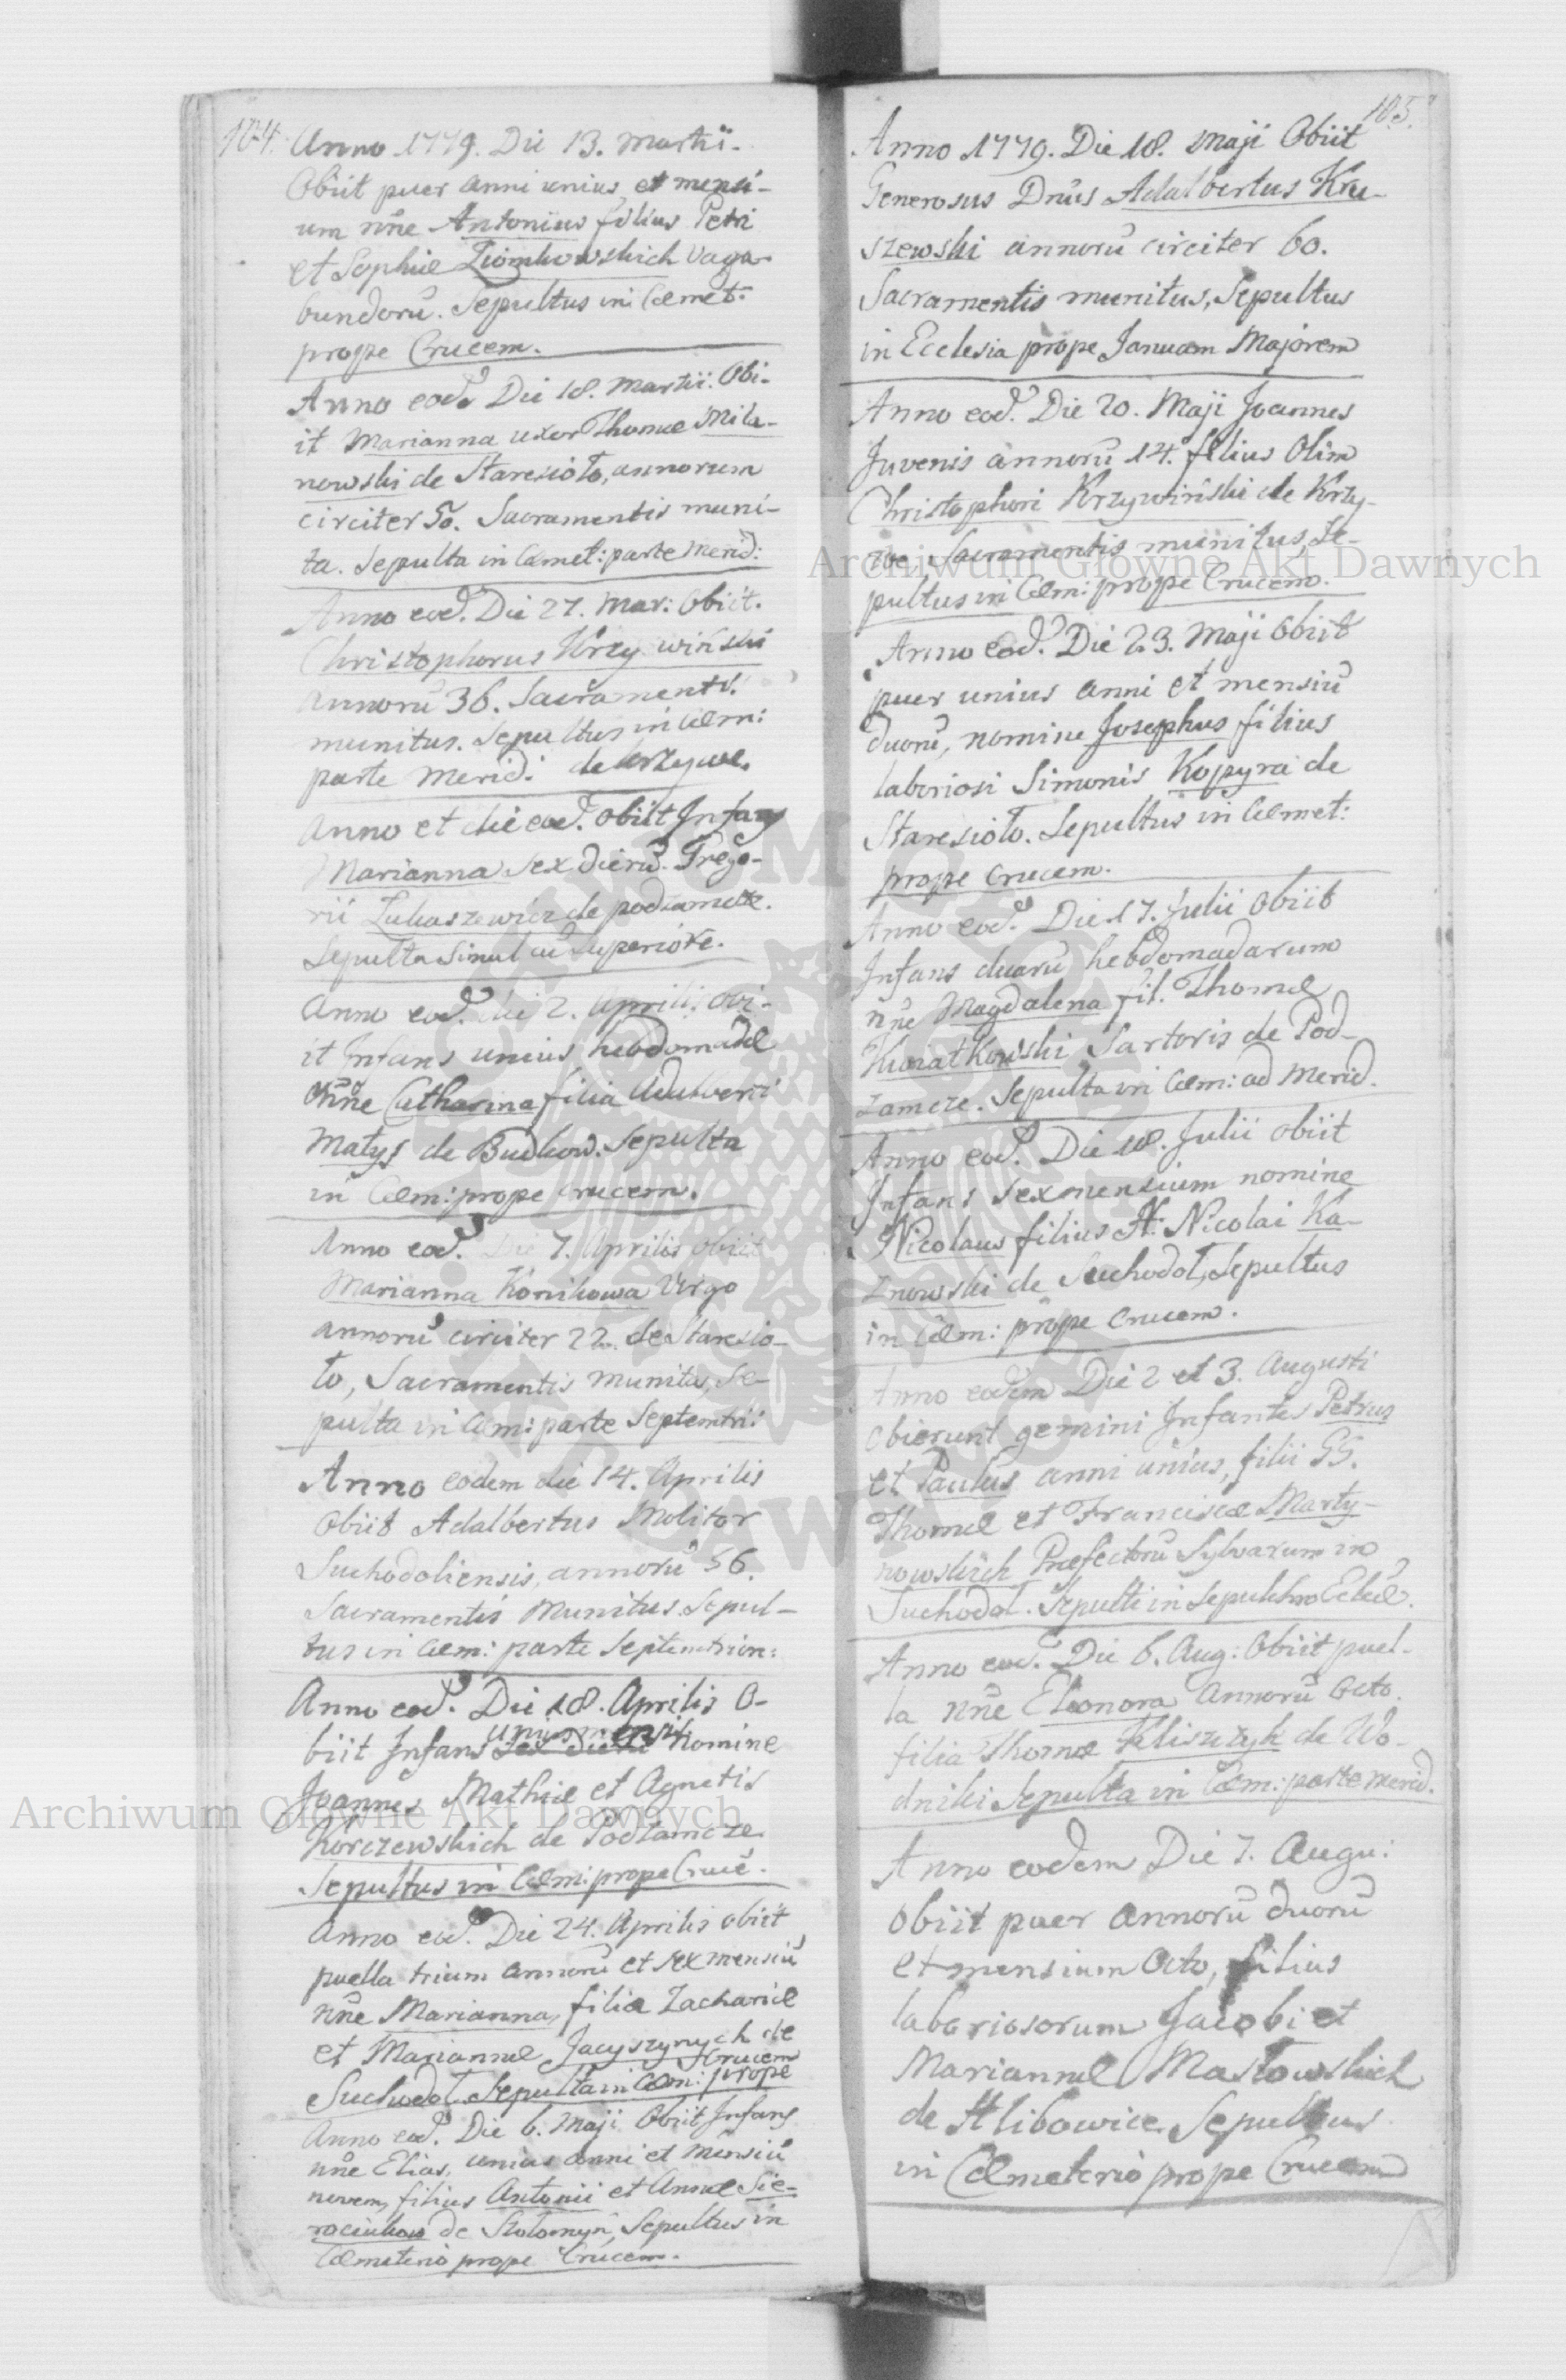 104.
Anno 1779. Die 13. Martii.
Obiit puer anni unius et mensi-
um nñe Antonius filius Petri
et Sophiæ Ziomkowskich vaga-
bundorũ. Sepultus in Cæmet:
prope Crucem.
Anno eod. Die 18. Martii. Obi-
it Marianna uxor Thomæ Mila-
nowski de Staresioło, annorum
circiter 50. Sacramentis muni-
ta. Sepulta in Cæmet: parte Merid:
Anno eod. Die 27. Mar: Obiit.
Christophorus Krzywiński
annorũ 36. Sacramentis
munitus. Sepultus in Cæm:
parte Merid: de Krzywe.
Anno et die eod. obiit Infans
Marianna sex dierũ. Grego-
rii Łukaszewicz de podzamcze.
Sepulta simul cũ superiore.
Anno eod. die 2. Aprili. Obi-
it Infans unius hebdomadæ
nñe Catharina filia Adalberti
Matys de Budkow. Sepulta
in Cæm: prope crucem.
Anno eod. Die 7. Aprilis obiit
Marianna Konikowa Virgo
annorũ circiter 22. de Staresio-
ło, Sacramentis munita, Se-
pulta in Cæm: parte Septemtri:
Anno eodem die 14. Aprilis
Obiit Adalbertus Molitor
Suchodoliensis, annorũ 56.
Sacramentis Munitus. Sepul-
tus in Cæm: parte Septemtrion:
Anno eod. Die 18. Aprilis O-
unius mensis
biit Infans sex dierũ Nomine
Joannes Mathiæ et Agnetis
Korczewskich de Podzamcze
Sepultus in Cæm: prope Crucẽ.
Anno eod. Die 24. Aprilis obiit
puella trium annorũ et sex mensiũ
nñe Marianna, filia Zachariæ
et Mariannæ Jacyszynych de
Crucem
Suchodoł. Sepulta in Cæm: prope
Anno eod. Die 6. Maji Obiit Infans
nñe Elias, unius anni et Mensiũ
novem, filius Antonii et Annæ Sie-
rociukow de Stołomyn, Sepultus in
Cæmeterio prope Crucem.
105.
Anno 1779. Die 18. Maji Obiit
Generosus Dñus Adalbertus Kru-
szewski annorũ circiter 60.
Sacramentis munitus, Sepultus
in Ecclesia prope Januam Majorem
Anno eod. Die 20. Maji Joannes
Juvenis annorũ 14. filius Olim
Christophori Krzywiński de Krzy-
we, Sacramentis munitus, Se-
pultus in Cæm: prope Crucem.
Anno eod. Die 23. Maji Obiit
puer unius anni et mensiũ
duorũ, nomine Josephus filius
laboriosi Simonis Kopyra de
Staresioło. Sepultus in Cæmet:
prope crucem.
Anno eod. Die 17. Julii Obiit
Infans duarũ hebdomadarum
nñe Magdalena fil. Thomæ
Kwiatkowski Sartoris de Pod-
zamcze. Sepulta in Cæm: ad Merid.
Anno eod. Die 18. Julii obiit
Infans sex mensium nomine
Nicolaus filius Nicolai Ka-
znowski de Suchodoł, Sepultus
in Cæm: prope Crucem.
Anno eodem Die 2 et 3. Augusti
Obierunt gemini Infantes Petrus
et Paulus anni unius, filii GG.
Thomæ et Franciscæ Marty-
nowskich Præfectorũ Sylvarum in
Suchodoł. Sepulti in Sepulchro Eccl.
Anno eod. Die 6. Aug: Obiit puel-
la nñe Eleonora annorũ octo
filia Thomæ Kliszczyk de Wo-
dniki Sepulta in Cæm: parte Merid.
Anno eodem Die 7. Augu:
Obiit puer annorũ duorũ
et mensium Octo, filius
laboriosorum Jacobi et
Mariannæ Masłowskich
de Hlibowice. Sepultus
in Cæmeterio prope Crucem
Archiwum Główne Akt Dawnych
Archiwum Główne Akt Dawnych